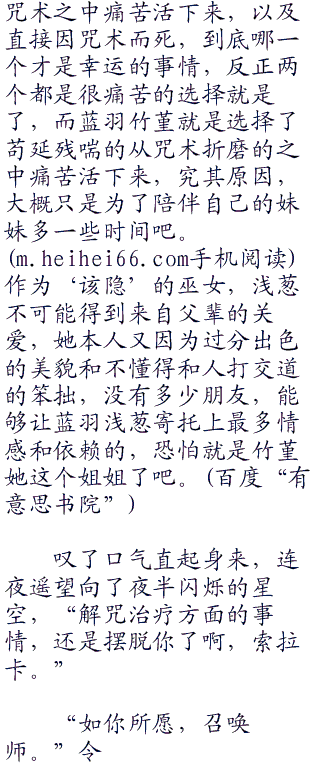 咒术之中痛苦活下来，以及
直接因咒术而死，到底哪一
个才是幸运的事情，反正两
个都是很痛苦的选择就是
了，而蓝羽竹堇就是选择了
苟延残喘的从咒术折磨的之
中痛苦活下来，究其原因，
大概只是为了陪伴自己的妹
妹多一些时间吧。
(m.heihei66.com手机阅读)
作为‘该隐’的巫女，浅葱
不可能得到来自父辈的关
爱，她本人又因为过分出色
的美貌和不懂得和人打交道
的笨拙，没有多少朋友，能
够让蓝羽浅葱寄托上最多情
感和依赖的，恐怕就是竹堇
她这个姐姐了吧。(百度“有
意思书院”)
叹了口气直起身来，连
夜遥望向了夜半闪烁的星
空，“解咒治疗方面的事
情，还是摆脱你了啊，索拉
卡。”
“如你所愿，召唤
师。”令